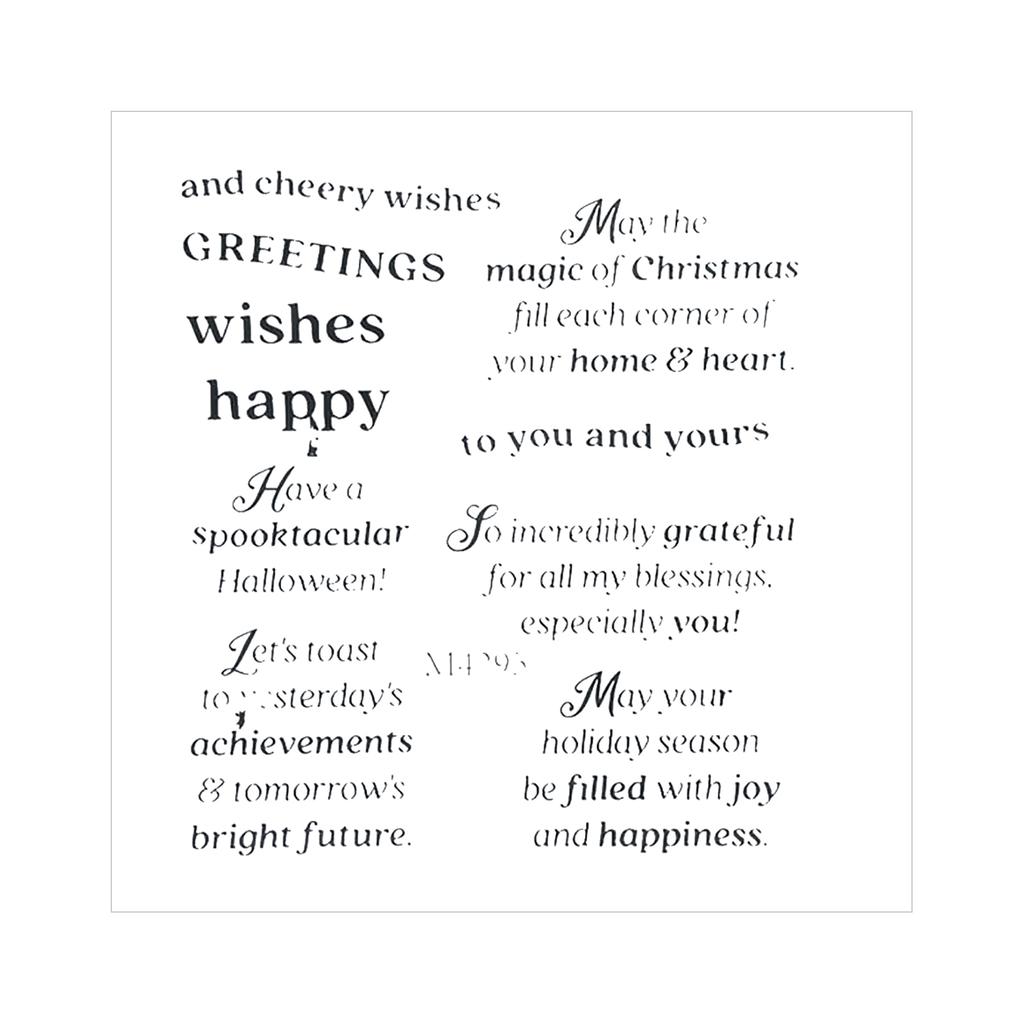 and cheery wishes
GREETINGS
wishes
happy
Have a
spooktacular
Halloween!
Let's toast
to yesterday's
achievements
& tomorrow's
bright future.
May the
magic of Christmas
fill each corner of
your home & heart.
to you and yours
So incredibly grateful
for all my blessings,
especially you!
May your
holiday season
be filled with joy
and happiness.